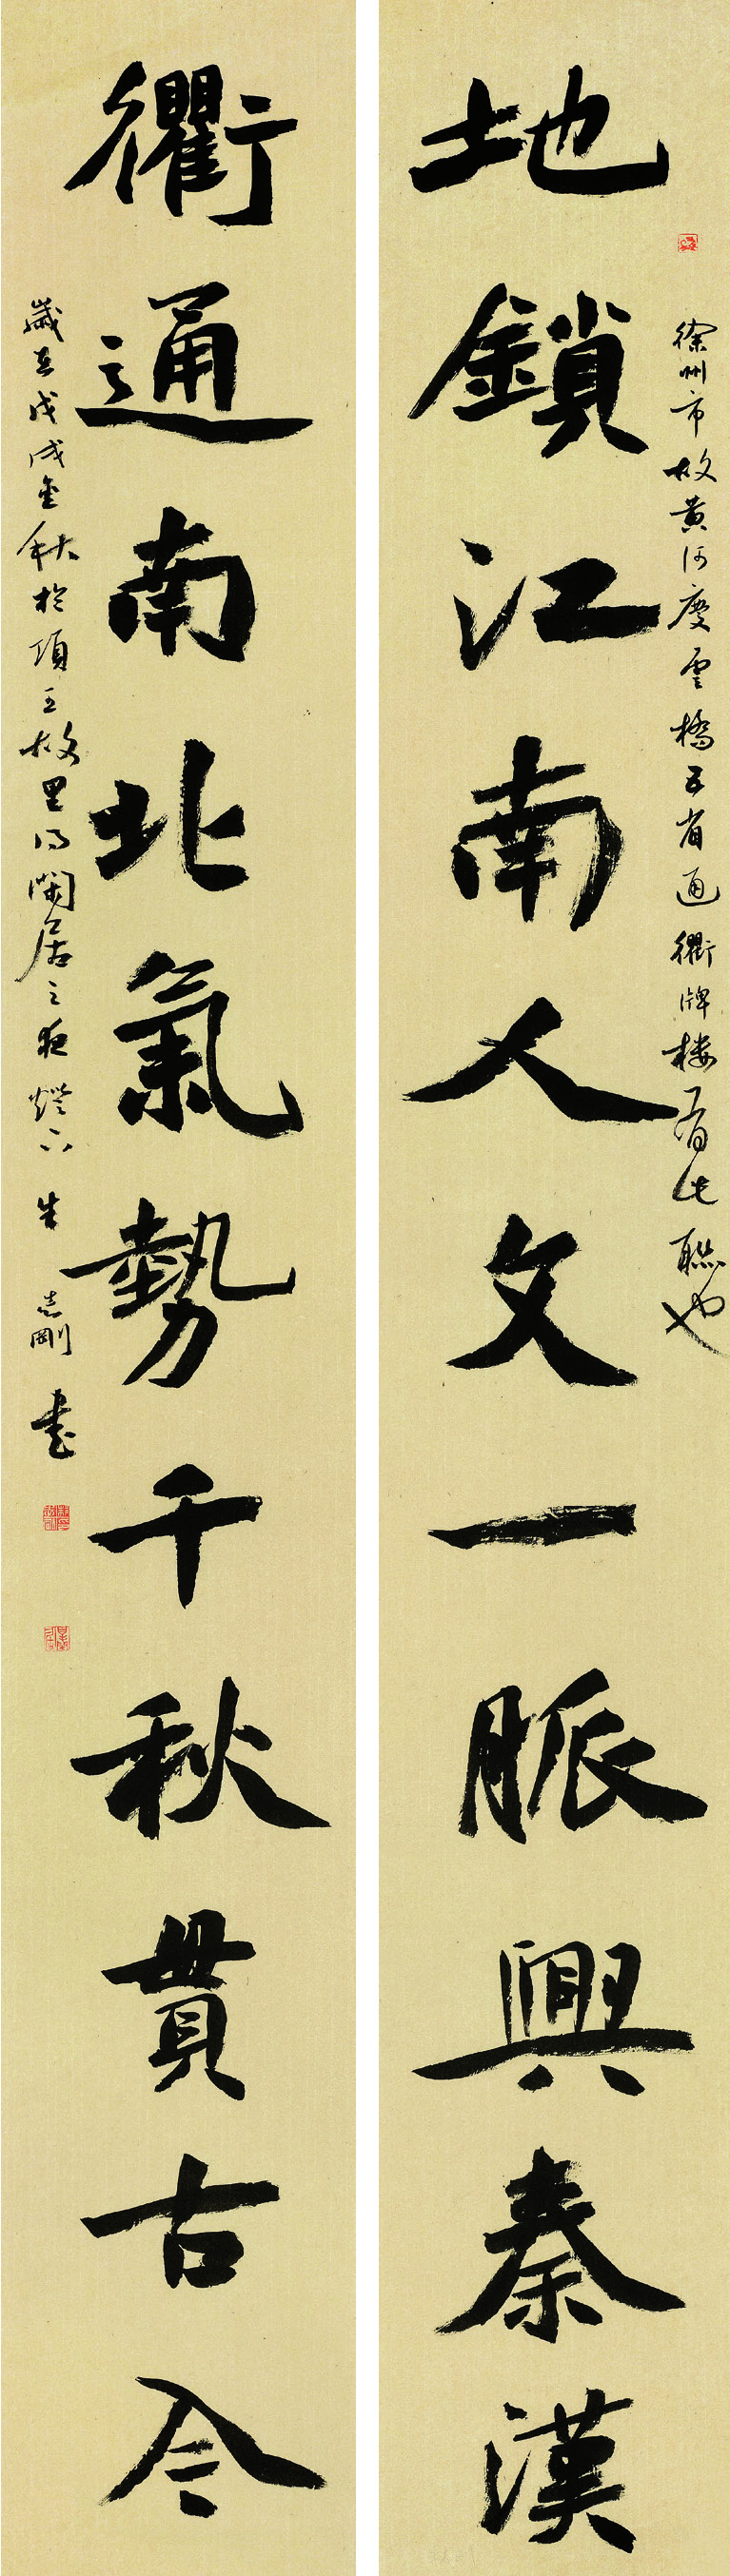 地鎖江南人文一脈興秦漢
徐州市故黃河慶雲橋五省通衢牌樓有此聯也
衢通南北氣勢千秋貫古今
歲在戊戌金秋於項王故里得閑居之夜燈下 朱志剛書